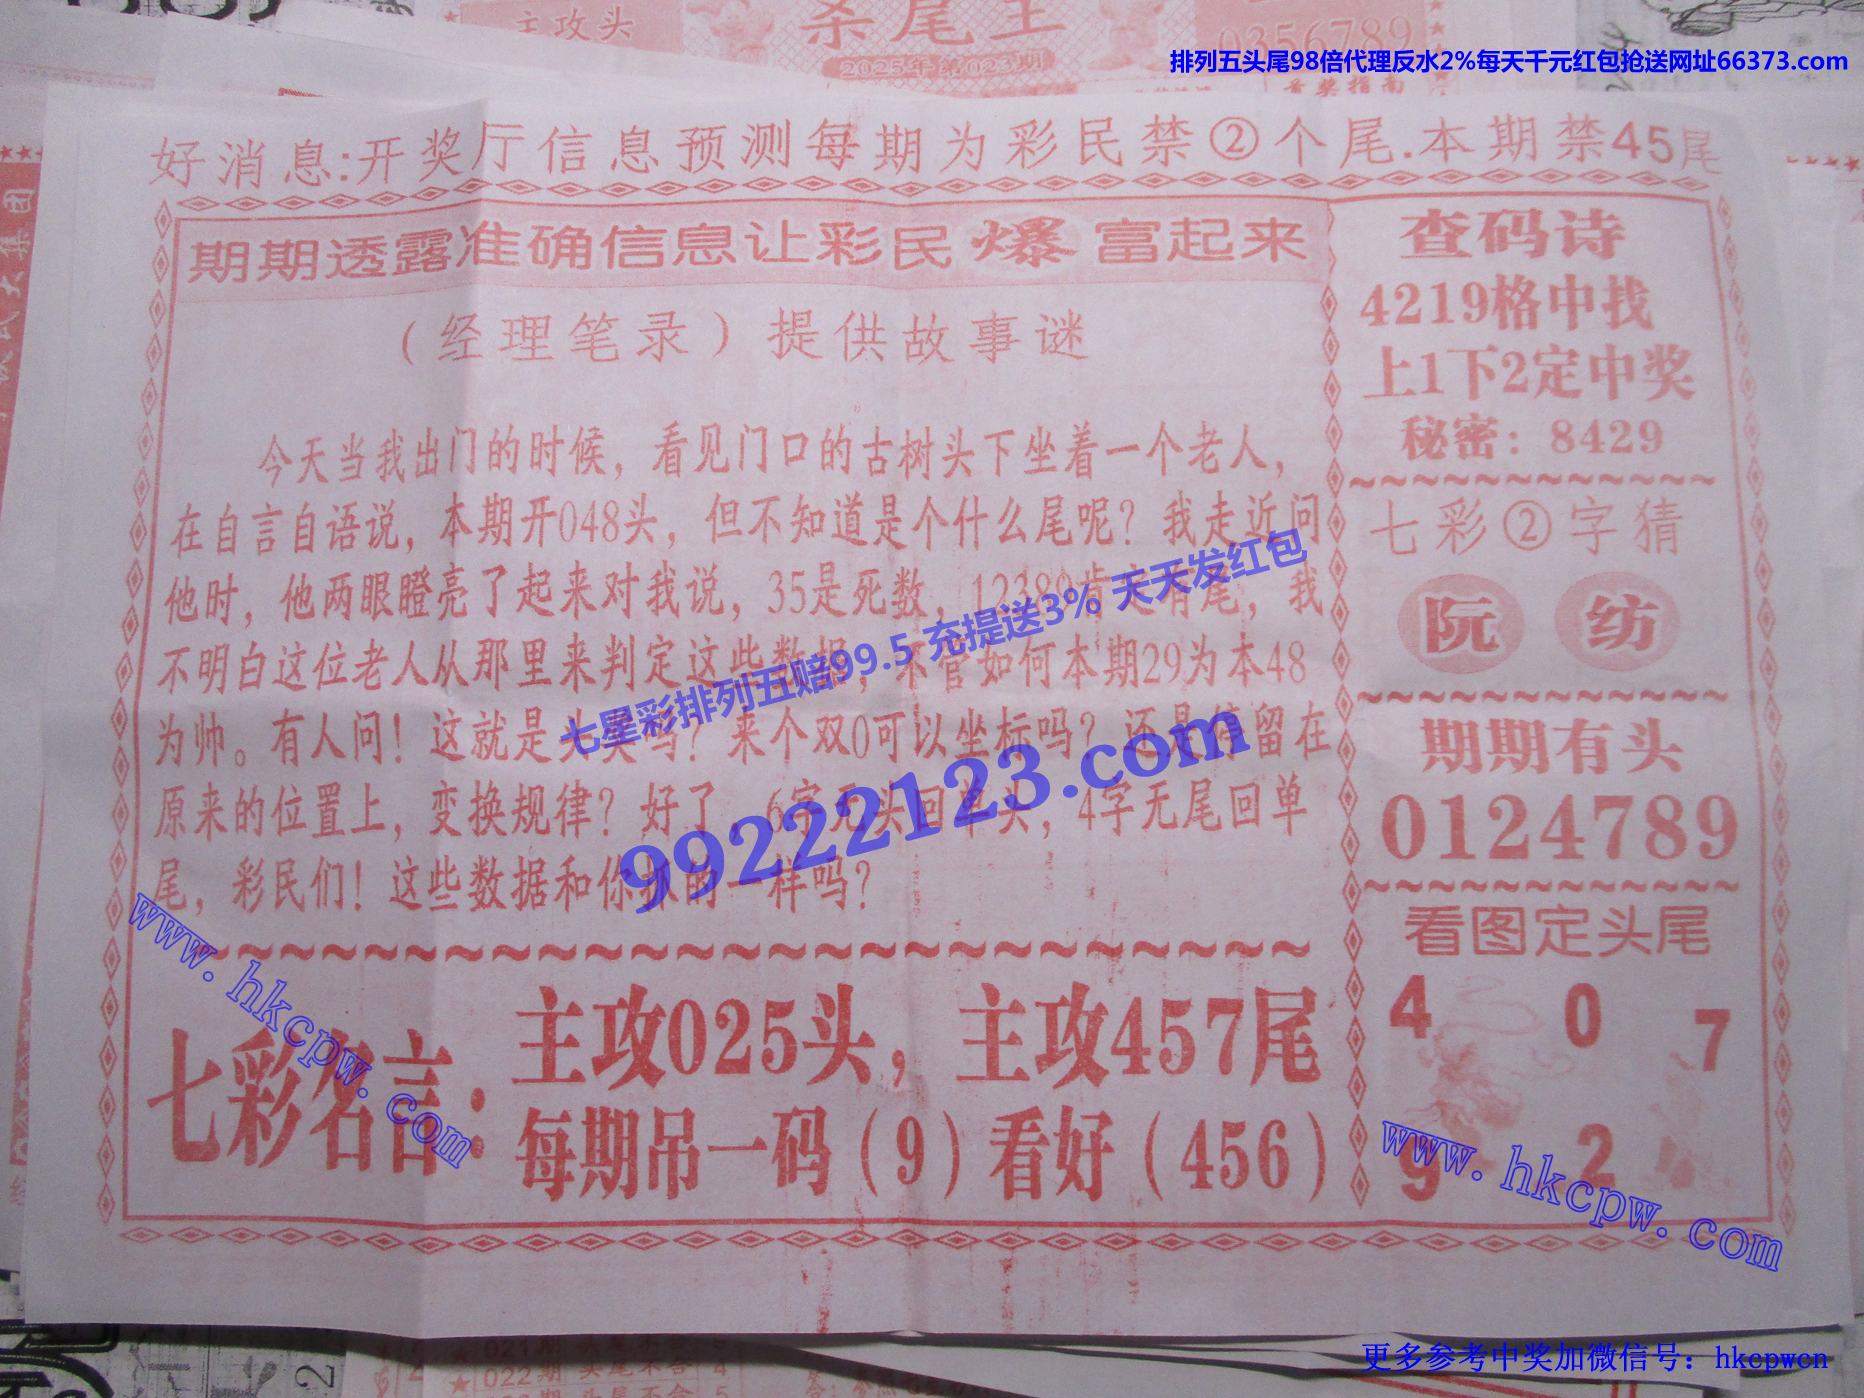 主攻头
杀尾王
0356789
2025年第023期
排列五头尾98倍代理反水2%每天千元红包抢送网址66373.com
好消息:开奖厅信息预测每期为彩民禁②个尾.本期禁45尾
期期透露准确信息让彩民爆富起来
（经理笔录）提供故事谜
今天当我出门的时候，看见门口的古树头下坐着一个老人，
在自言自语说，本期开048头，但不知道是个什么尾呢？我走近问
他时，他两眼瞪亮了起来对我说，35是死数，12389肯定有尾，我
不明白这位老人从那里来判定这些数据，不管如何本期29为本48
为帅。有人问！这就是头奖吗？来个双0可以坐标吗？还是停留在
原来的位置上，变换规律？好了，6字无头回单头，4字无尾回单
尾，彩民们！这些数据和你抓的一样吗？
七彩名言：
主攻025头，主攻457尾
每期吊一码（9）看好（456）
查码诗
4219格中找
上1下2定中奖
秘密：8429
七彩②字猜
阮 纺
期期有头
0124789
看图定头尾
4 0 7
9 2
七星彩排列五赔99.5 充提送3% 天天发红包
99222123.com
www.hkcpw.com
www.hkcpw.com
021期 头尾不合
022期 头尾不合 4
更多参考中奖加微信号：hkcpwcn